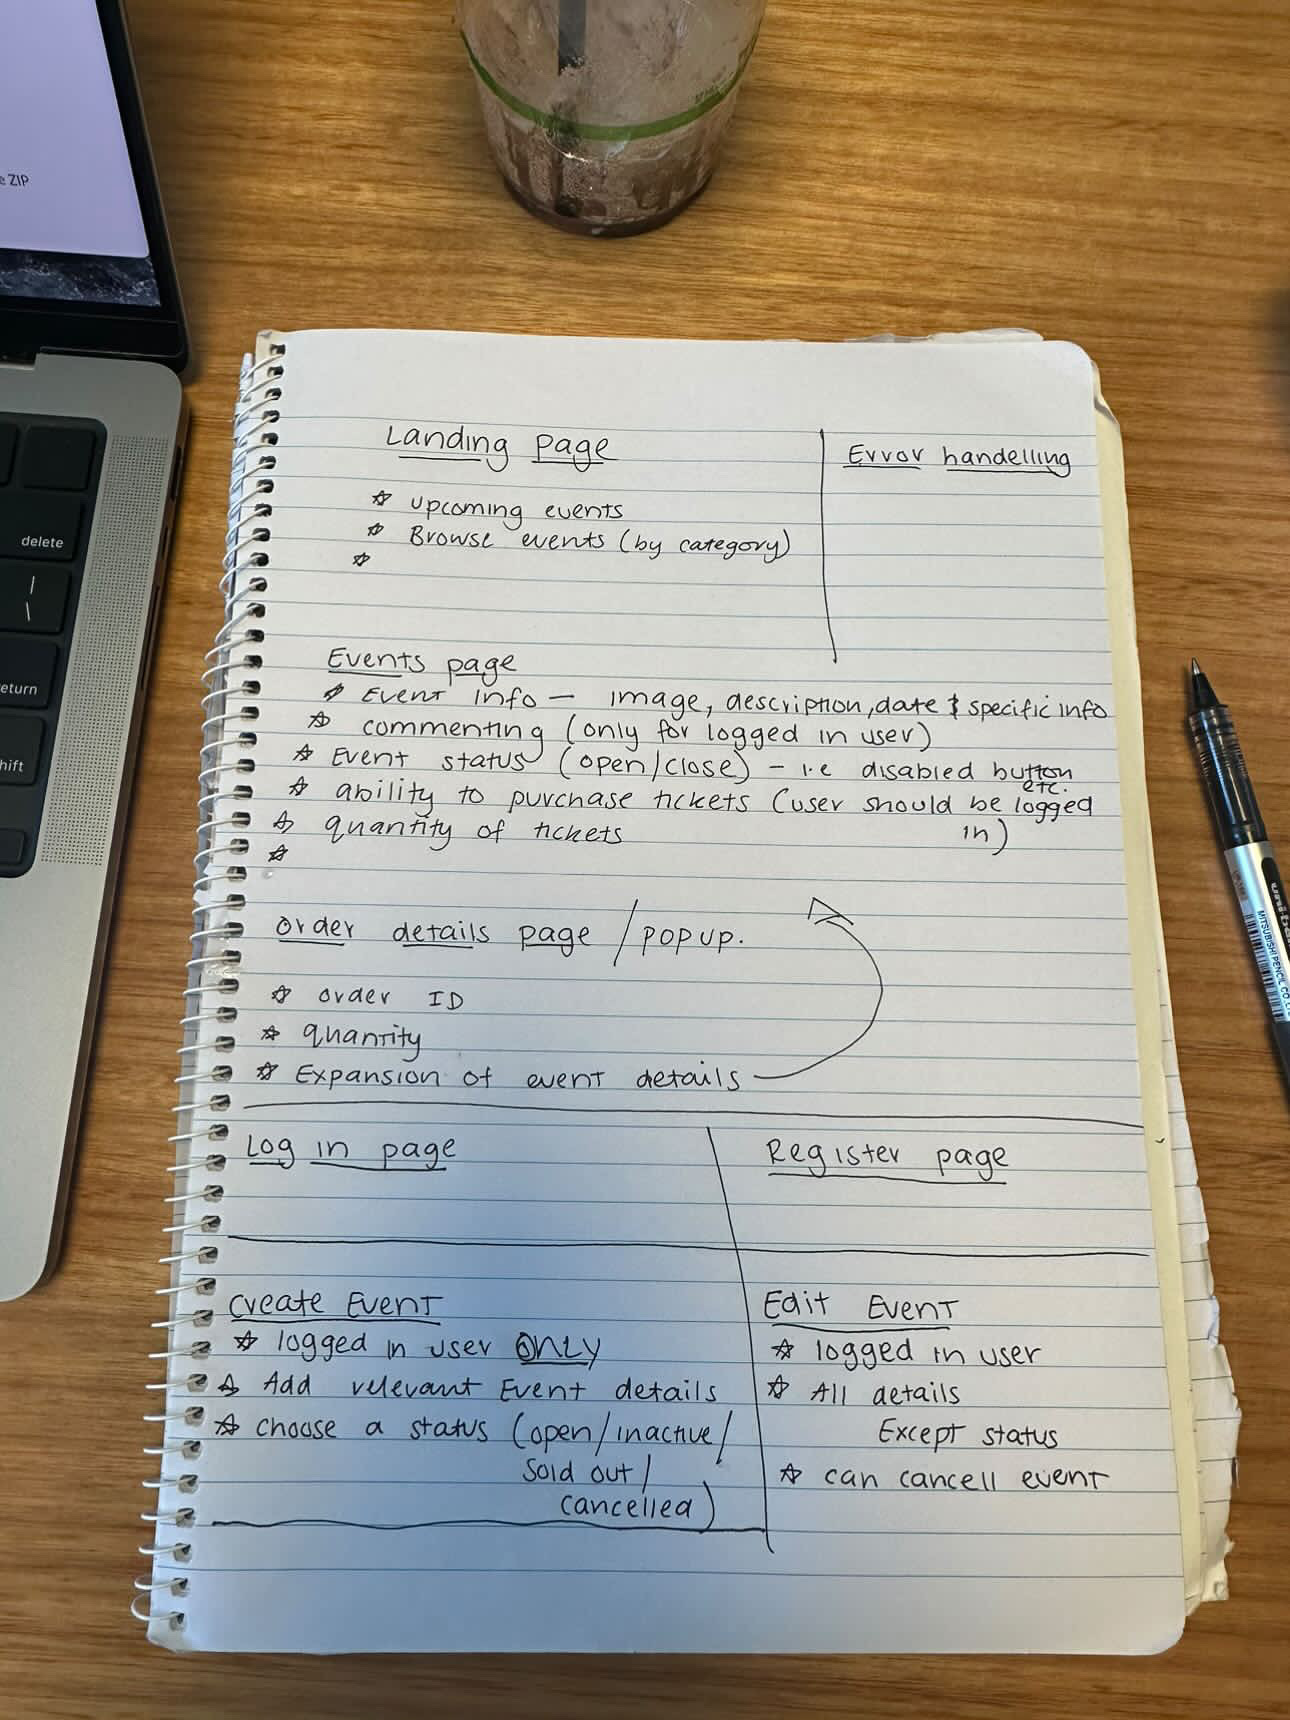 e ZIP
delete
|
\
eturn
hift
Landing page
Error handelling
upcoming events
Browse events (by category)
Events page
Event info – image, description, date & specific info
commenting (only for logged in user)
Event status (open/close) – i.e disabled button
etc.
ability to purchase tickets (user should be logged
in)
quantity of tickets
order details page / popup.
order ID
quantity
Expansion of event details
Log in page
Register page
Create Event
logged in user ONLY
Add relevant Event details
choose a status (open/inactive/
Sold out/
cancelled)
Edit Event
logged in user
All details
Except status
can cancell event
MITSUBISHI PENCIL CO.